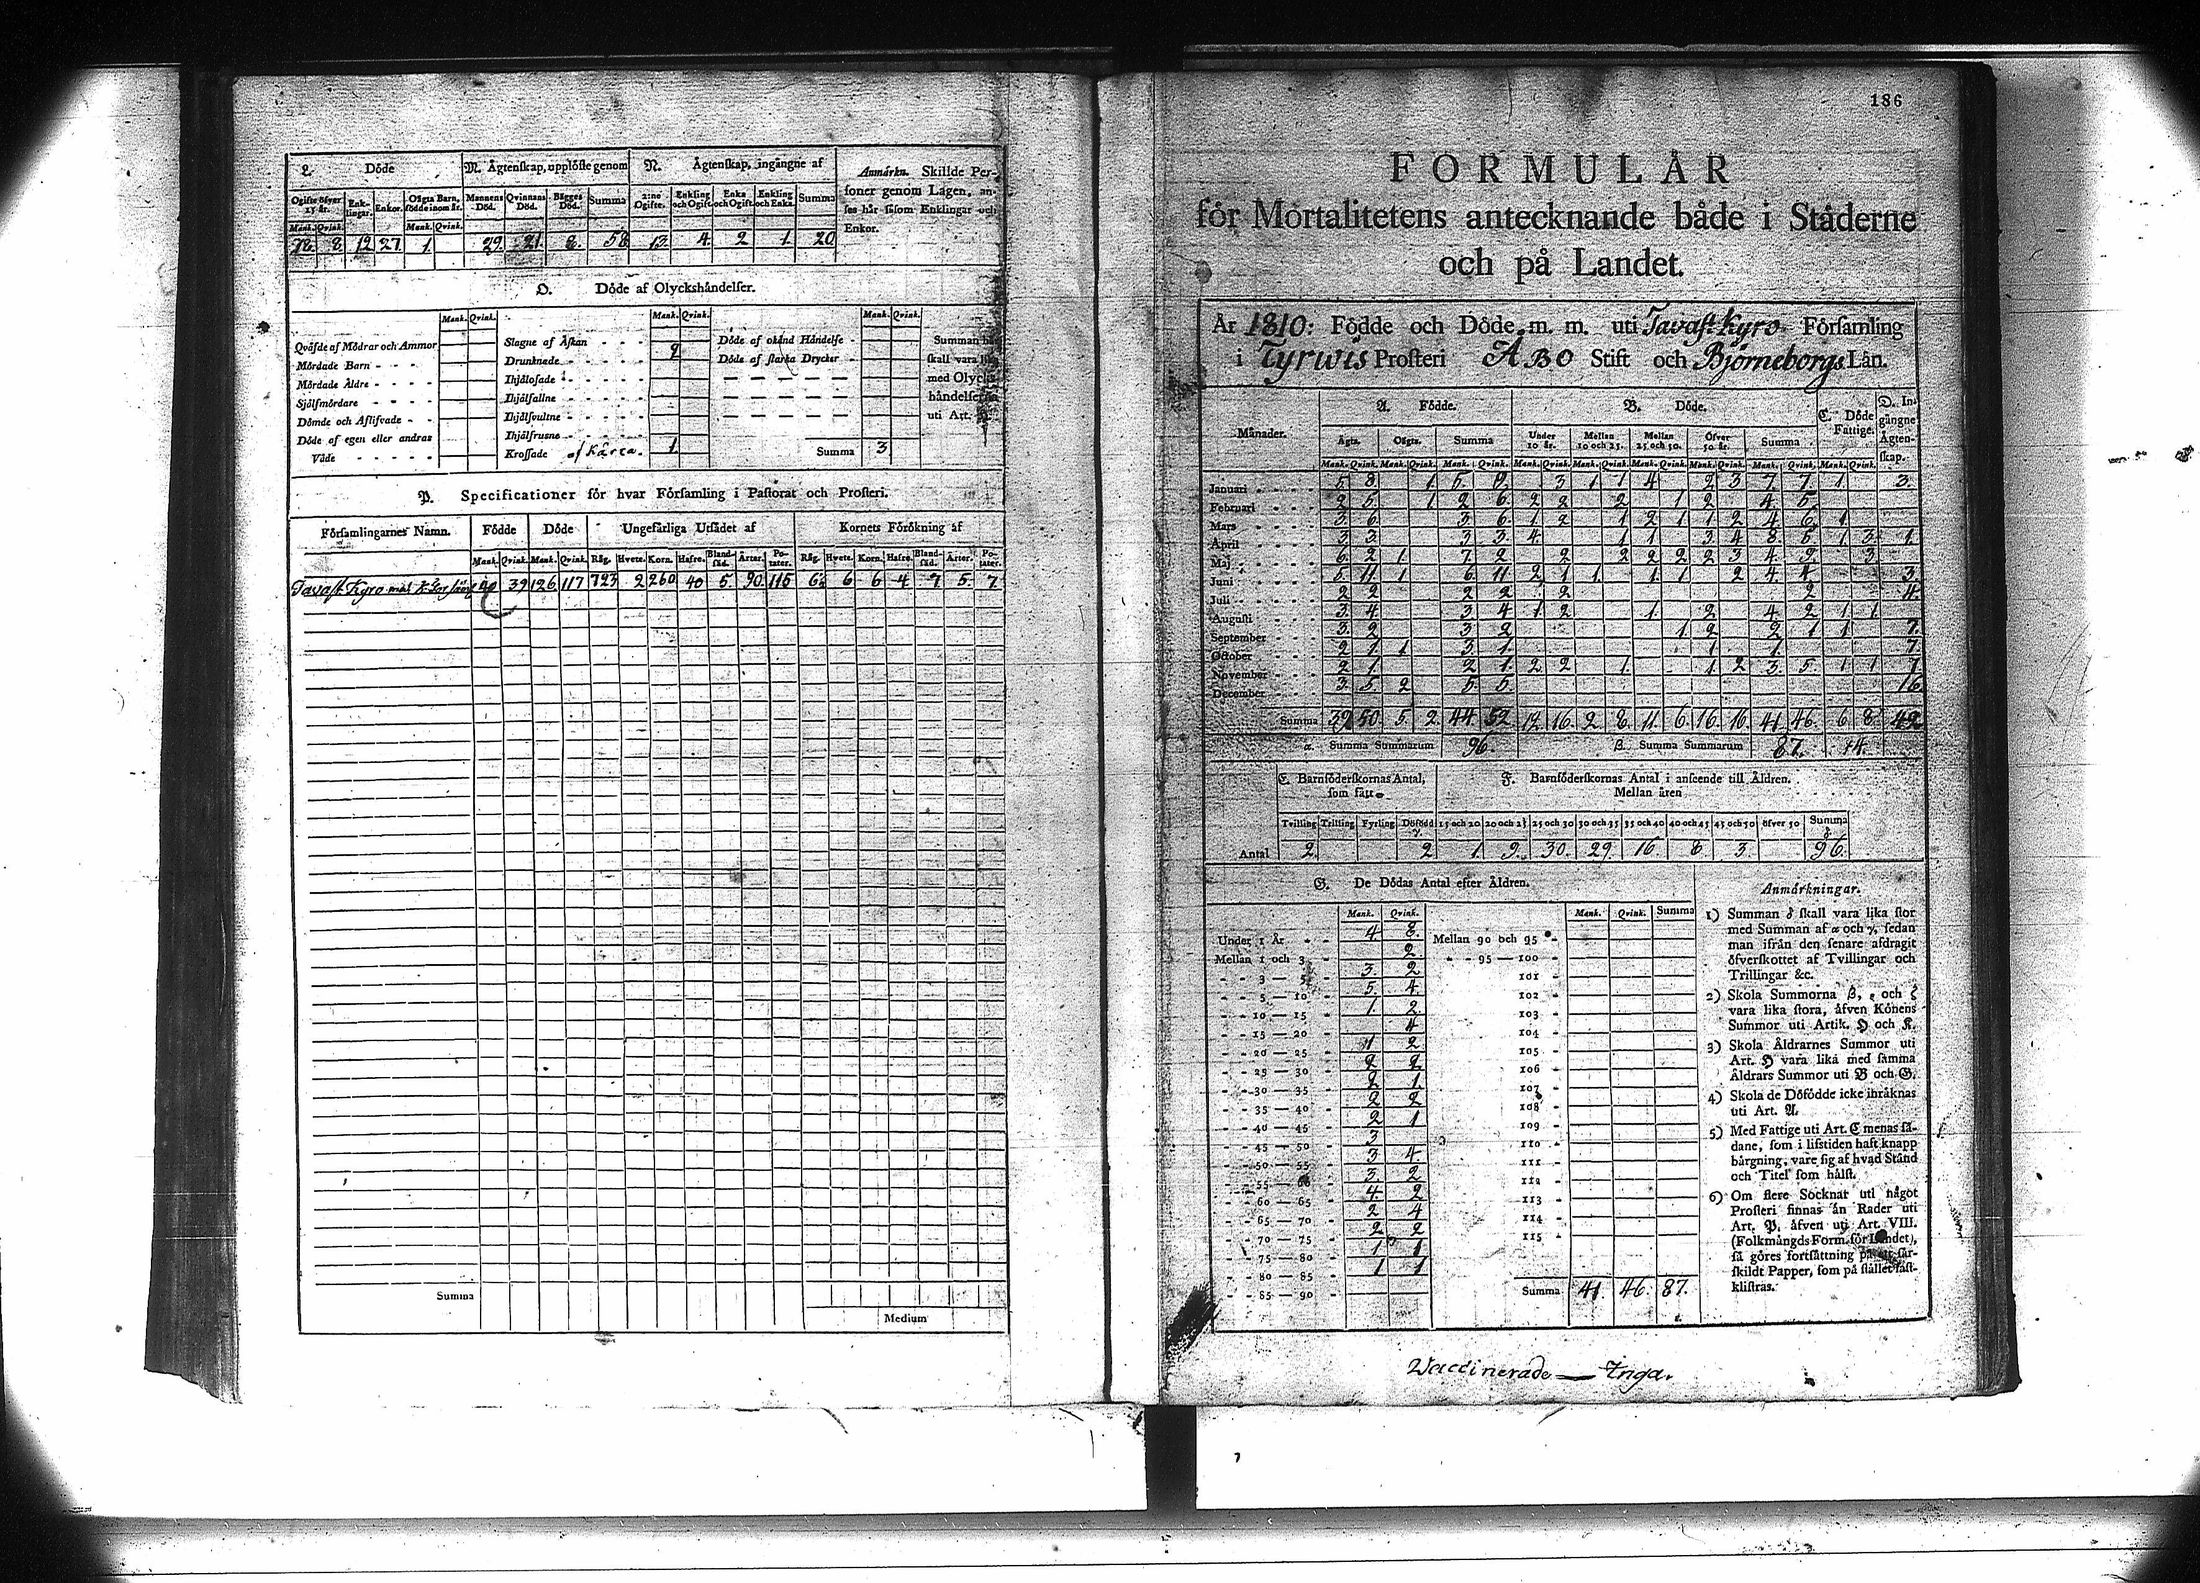 L. Döde
M. Ägtenskap, upplöste genom
N. Ägtenskap, ingångne af
Anmärkn. Skillde Per-
soner genom Lagen, an-
ses här såsom Enklingar och
Enkor.
Ogifte öfver 15 år. Enklingar. Enkor. Oägta Barn, födde inom år. Mannens Död. Qvinnans Död. Bägges Död. Summa 2:ne Ogifte. Enkling och Ogift. Enka och Ogift. Enkling och Enka. Summa
Mank. Qvink. Mank. Qvink.
8. 12 27. 1. 29. 21. 8. 58. 13. 4. 2 1. 20
O. Döde af Olyckshändelser.
Mank. Qvink. Mank. Qvink. Mank. Qvink.
Qväfde af Mödrar och Ammor
Mördade Barn
Mördade Äldre
Sjelfmördare
Dömde och Aflifvade
Döde af egen eller andras
Våde
Slagne af Åskan
Drunknade 2
Ihjälosade
Ihjälfallne
Ihjälsvultne
Ihjälfrusne
Krossade af Kärra. 1.
Döde af okänd Händelse
Döde af starka Drycker
Summa 3
Summan
skall vara
med Olycks-
händelserna
uti Art.
P. Specificationer för hvar Församling i Pastorat och Prosteri.
Församlingarnes Namn. Födde Döde Ungefärliga Utsädet af Kornets Förökning af
Mank. Qvink. Mank. Qvink. Råg. Hvete. Korn. Hafre. Bland-säd. Ärter. Po-tater. Råg. Hvete. Korn. Hafre. Bland-säd. Ärter. Po-tater.
Tavast Kyro 39 126 117 723 2 260 40 5. 90. 115 6 6 6 4 7 5. 7
Summa
Medium
186
FORMULÄR
för Mortalitetens antecknande både i Städerne
och på Landet.
År 1810: Födde och Döde m. m. uti Tavast Kyro Församling
i Tyrwis Prosteri ÅBO Stift och Björneborgs Län.
Månader. A. Födde. B. Döde. C. Döde Fattige. D. Ingångne Ägtenskap.
Ägta. Oägta. Summa Under 10 år. Mellan 10 och 25. Mellan 25 och 50. Öfver 50 år. Summa
Mank. Qvink. Mank. Qvink. Mank. Qvink. Mank. Qvink. Mank. Qvink. Mank. Qvink. Mank. Qvink. Mank. Qvink. Mank. Qvink.
Januari 5 8. 1. 5. 9. 3 1 1 4 2 3 7 7. 1. 3.
Februari 2 5. 1 2 6. 2 2 2 1 2 4. 5.
Mars 3. 6. 3. 6. 1. 2 1 2 1. 1 2 4. 6. 1.
April 3 3. 3 3. 4. 1 1 3 4 8. 5 1 3. 1.
Maj 6. 2 1 7. 2 2 2 2 2 2 3 4. 9. 3
Juni 5. 11. 1 6. 11 2 1 1. 1. 1. 2 4. 4. 3.
Juli 2 2 2 2 2 2 4.
Augusti 3. 4 3 4 1 2 1. 2 4. 2 1 1
September 3. 2 3 2 1. 2 2 1 1 7.
October 2 1. 1 3 1. 1 1. 7.
November 2 1. 2 1. 2 2 1. 1. 2 3. 5. 1 1 7.
December 3. 5. 2 5. 5. 16.
Summa 39 50. 5. 2. 44. 52. 12 16. 2 8. 11. 6. 16. 16. 41. 46. 6. 8. 42
α. Summa Summarum 96 β. Summa Summarum 87. 14.
E. Barnföderskornas Antal, som fått
F. Barnföderskornas Antal i anseende till Åldren.
Mellan åren
Tvilling Trilling Fyrling Dödfödd γ. 15 och 20 20 och 25 25 och 30 30 och 35 35 och 40 40 och 45 45 och 50 öfver 50 Summa δ
Antal 2. 2 1. 9. 30. 29. 16. 8. 3. 96.
G. De Dödas Antal efter Åldren.
Mank. Qvink. Mank. Qvink. Summa
Under 1 År 4. 8.
Mellan 1 och 3 2.
3 — 5 3. 2
5 — 10 5 4.
10 — 15 1. 2.
15 — 20 4
20 — 25 1 2
25 — 30 2 2
30 — 35 2 1.
35 — 40 2 2
40 — 45 2 1
45 — 50 3
50 — 55 3 4.
55 — 60 3. 2
60 — 65 4. 2
65 — 70 2 4
70 — 75 2 2
75 — 80 1 1
80 — 85 1 1
85 — 90
Mellan 90 och 95
95 — 100
101
102
103
104
105
106
107
108
109
110
111
112
113
114
115
Summa 41. 46. 87.
Anmärkningar.
1) Summan δ skall vara lika stor
med Summan af α och γ, sedan
man ifrån den senare afdragit
öfverskottet af Tvillingar och
Trillingar &c.
2) Skola Summorna β, ε och ζ
vara lika stora, äfven Könens
Summor uti Artik. H och K.
3) Skola Åldrarnes Summor uti
Art. H vara lika med samma
Åldrars Summor uti B och G.
4) Skola de Döfödde icke inräknas
uti Art. A.
5) Med Fattige uti Art. C menas så-
dane, som i lifstiden haft knapp
bärgning, vare sig af hvad Stånd
och Titel som hälst.
6) Om flere Socknar uti något
Prosteri finnas än Rader uti
Art. P, äfven uti Art. VIII.
(Folkmängds Form. för Landet),
så göres fortsättning på ett sär-
skildt Papper, som på stället fäst-
klistras.
Waccinerade — Inga.